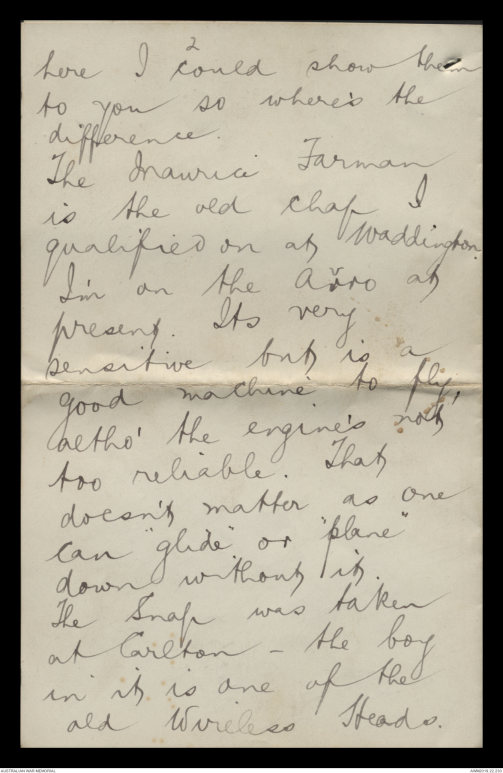 2
here I could show them
to you so where's the
difference.
The Maurice Farman
is the old chap I
qualified on at Waddington.
I'm on the Avro at
present. Its very
sensitive but is a
good machine to fly,
altho' the engine's not
too reliable. That
doesn't matter as one
can "glide" or "plane"
down without it.
The Snap was taken
at Carlton - the boy
in it is one of the
old Wireless Heads.
AUSTRALIAN WAR MEMORIAL